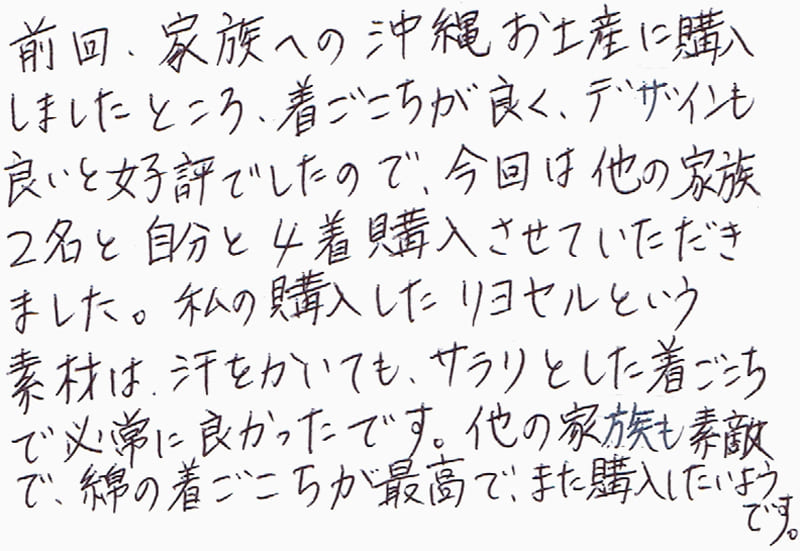 前回、家族への沖縄お土産に購入
しましたところ、着ごこちが良く、デザインも
良いと好評でしたので、今回は他の家族
2名と自分と4着購入させていただき
ました。私の購入したリヨセルという
素材は、汗をかいても、サラリとした着ごこち
で必常に良かったです。他の家族も素敵
で、綿の着ごこちが最高で、また購入したいよう
です。